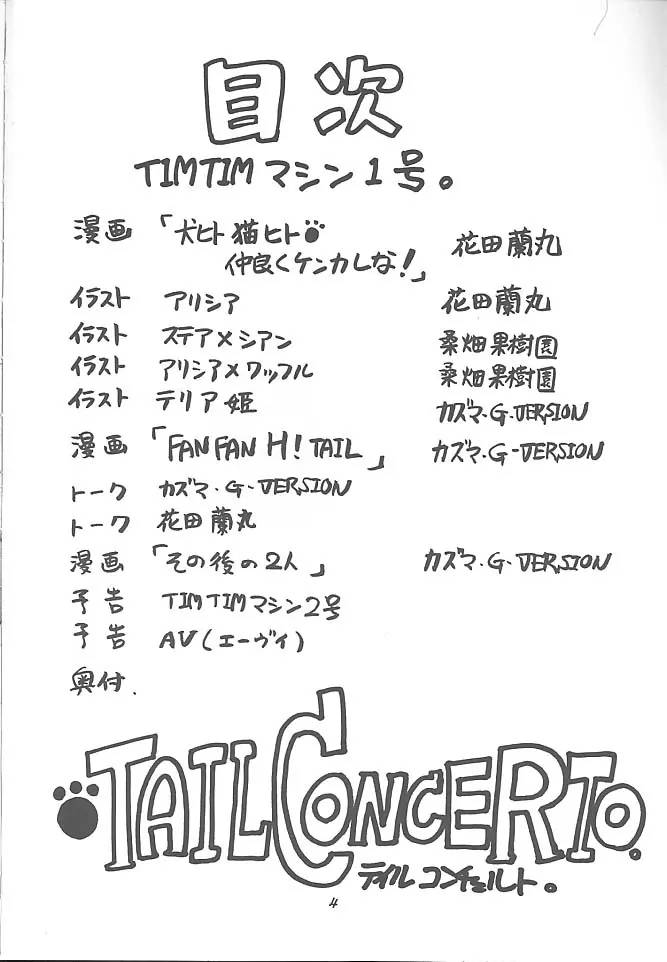 目次
TIMTIMマシン1号。
漫画 「犬ヒト猫ヒト 花田蘭丸
仲良くケンカしな!」
イラスト アリシア 花田蘭丸
イラスト ステア×シアン 桑畑果樹園
イラスト アリシア×ワッフル 桑畑果樹園
イラスト テリア姫 カズマ・G-VERSION
漫画 「FANFAN H! TAIL」 カズマ・G-VERSION
トーク カズマ・G-VERSION
トーク 花田蘭丸
漫画 「その後の2人」 カズマ・G-VERSION
予告 TIMTIMマシン2号
予告 AV(エーヴィ)
奥付.
TAIL CONCERTO.
テイルコンチェルト。
4